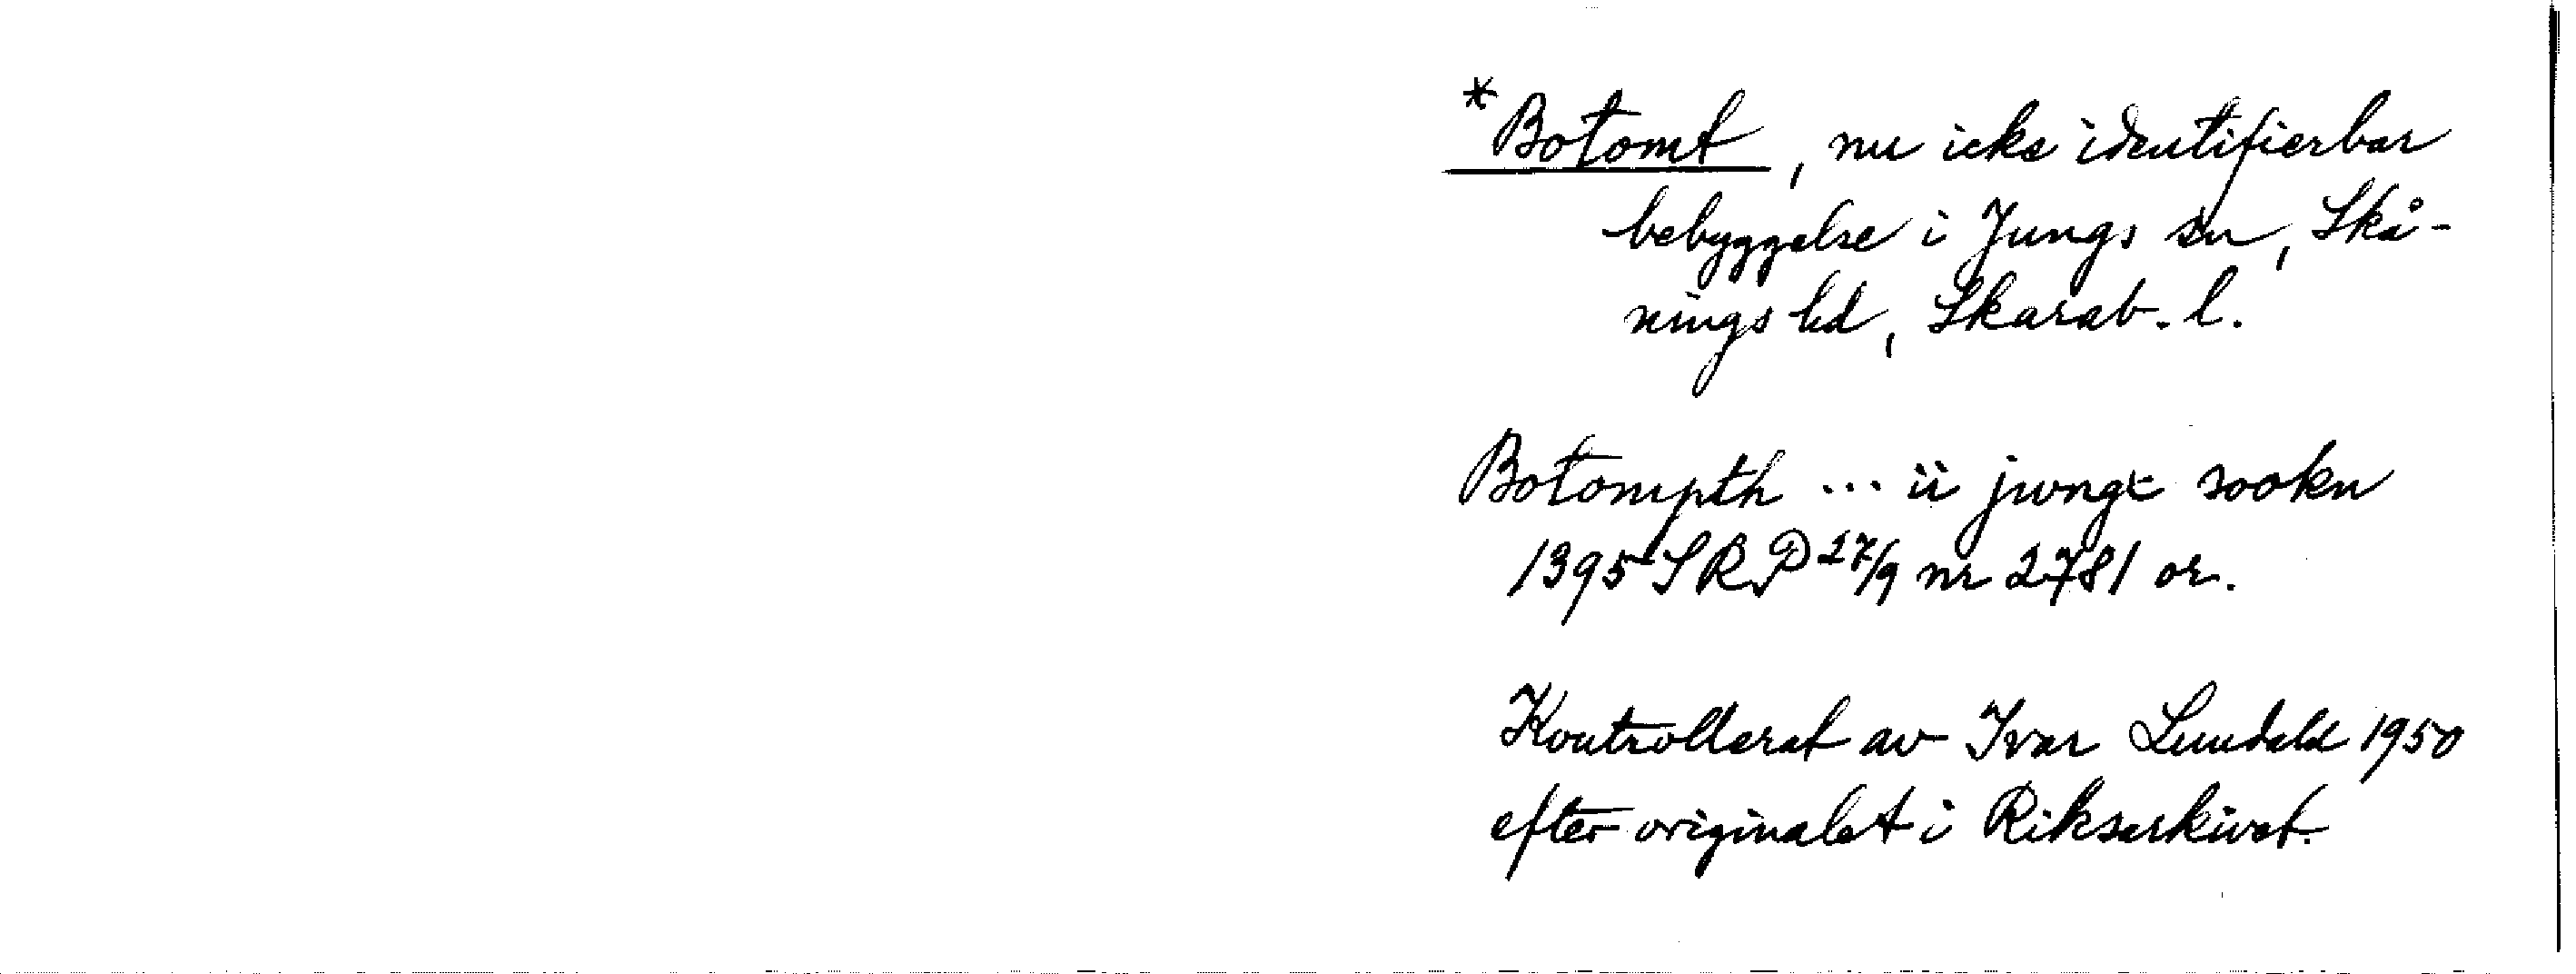 *Botomt, nu icke identifierbar
bebyggelse i Jungs sn, Skå-
nings hd, Skarab. l.
Botompth ... ii jwngæ sookn
1395 SRP 27/9 nr 2781 or.
Kontrollerat av Ivar Lundahl 1950
efter originalet i Riksarkivet.